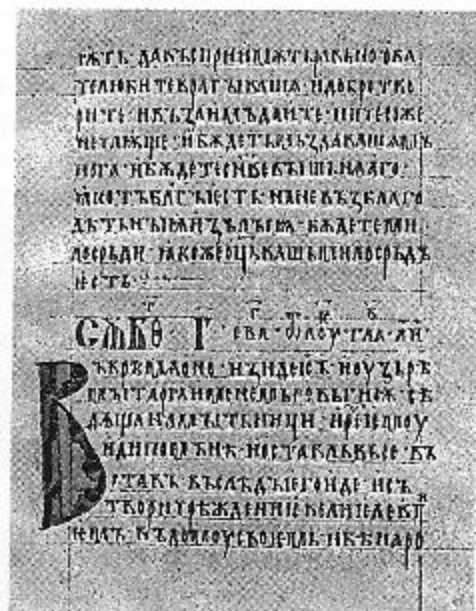 ѩтъ · да въсприимѫтъ равьно · оба
че любите врагы вашѧ · и добро тво
рите · и въ заимъ даите · ничесоже
не чаѭще · и бѫдетъ мьзда ваша мъ
нога · и бѫдете снве вышьнѧаго ·
ꙗко тъ благъ естъ · на невъзблаго
дѣтьнꙑѩ и зълꙑѩ · бѫдете ми
лосрьди · ꙗкоже оць вашь милосрьдъ
естъ ·
сѫбо · г · ева ѿ лоу · гла
Въ врѣмѧ оно · изиде ис · и оузьрѣ
мытарѣ именемь
дѧща на мытьници · и рече емоу
иди по мьнѣ · и оставль вьсе въ
ставъ въ слѣдъ его иде · и съ
твори чрѣждение велие левги
въ домоу своемь · и бѣ наро